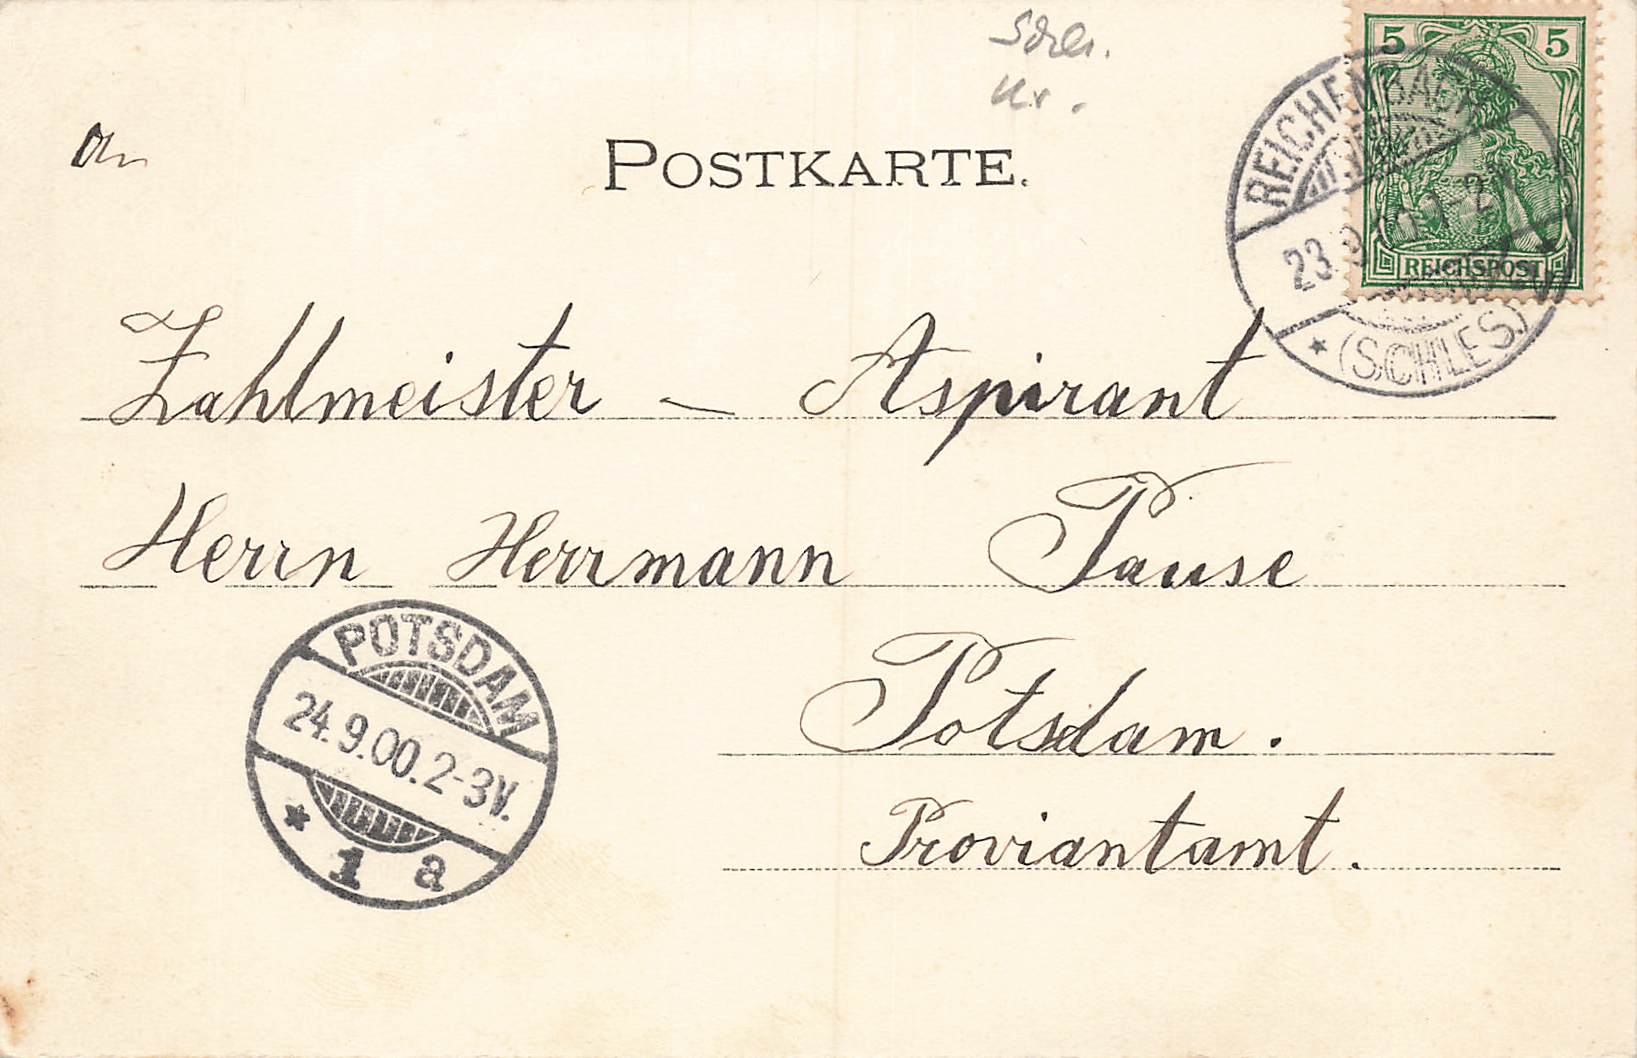 POSTKARTE.
5 5
REICHSPOST
REICHENBACH
23.9.00.1-2
* (SCHLES.)
Zahlmeister - Aspirant
Herrn Herrmann Pause
Potsdam.
Proviantamt.
POTSDAM
24.9.00.2-3V.
* 1 a